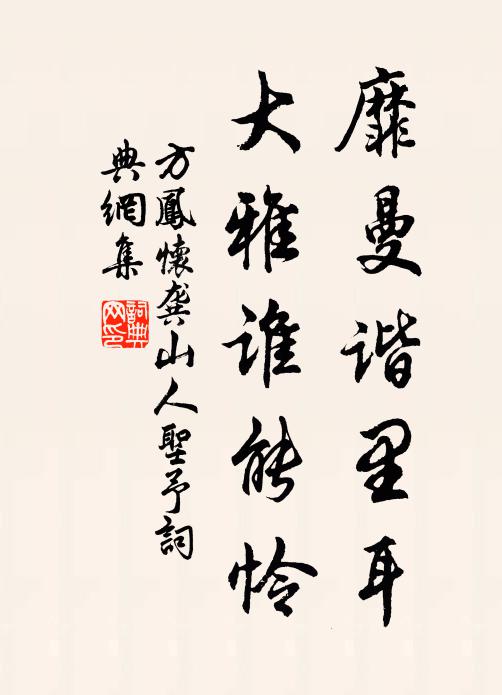 靡曼谐里耳
大雅谁能怜
方鳳懷龚山人聖予詞
典網集
詞典网印